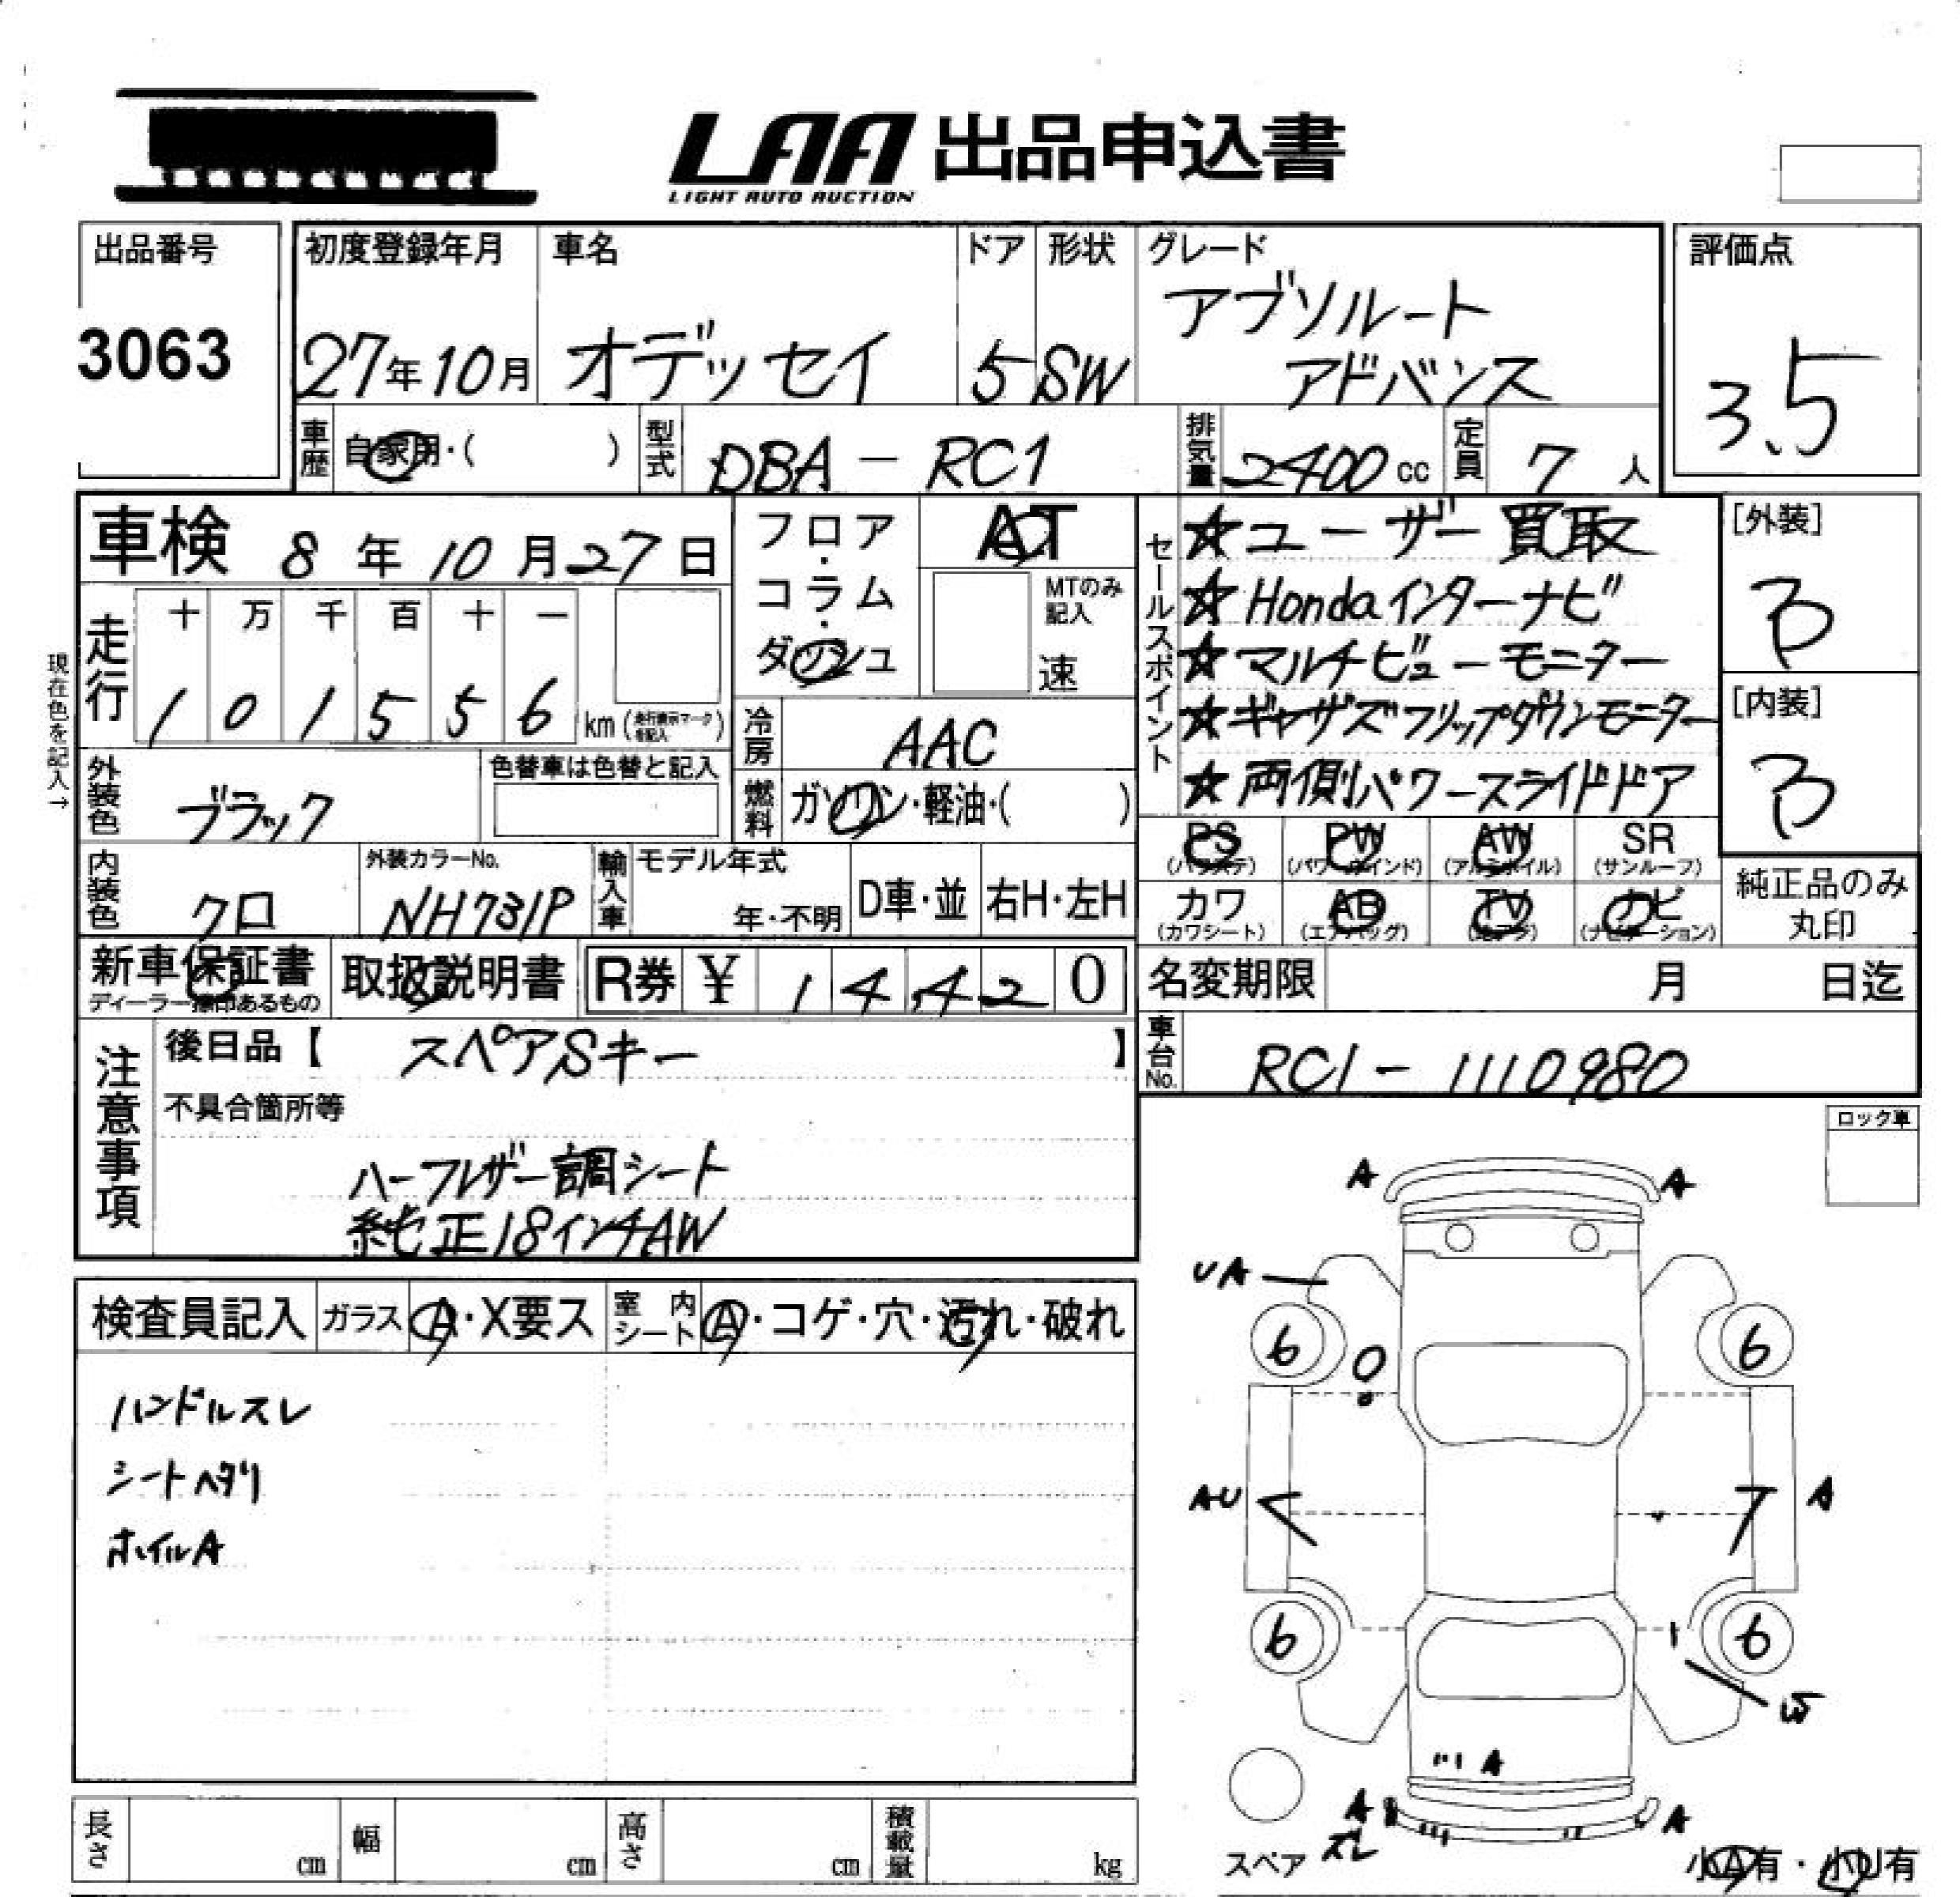 LAA 出品申込書
LIGHT AUTO AUCTION
出品番号
3063
初度登録年月
27年10月
車名
オデッセイ
ドア
5
形状
SW
グレード
アブソルート
アドバンス
評価点
3.5
車歴
自家用・( )
型式
DBA-RC1
排気量
2400 cc
定員
7 人
車検 8年10月27日
フロア・コラム・ダッシュ
AT
MTのみ記入
速
セールスポイント
☆ユーザー買取
☆Hondaインターナビ
☆マルチビューモニター
☆ギャザズフリップダウンモニター
☆両側パワースライドドア
[外装]
B
[内装]
B
現在色を記入→
走行
十 万 千 百 十 一
1 0 1 5 5 6 km (走行表示マークを記入)
冷房
AAC
外装色
ブラック
色替車は色替と記入
燃料
ガソリン・軽油・( )
PS (パワステ)
PW (パワーウインド)
AW (アルミホイル)
SR (サンルーフ)
カワ (カワシート)
AB (エアバッグ)
TV (地デジ)
ナビ (ナビゲーション)
純正品のみ
丸印
内装色
クロ
外装カラーNo.
NH731P
輸入車
モデル年式
年・不明
D車・並
右H・左H
新車保証書
ディーラー捺印あるもの
取扱説明書
R券 ¥ 14,420
名変期限 月 日迄
車台No.
RC1-1110980
注意事項
後日品【 スペアSキー 】
不具合箇所等
ハーフレザー調シート
純正18インチAW
ロック車
検査員記入
ガラス
A・X要ス
室内シート
A・コゲ・穴・汚れ・破れ
ハンドルスレ
シートヘタリ
ホイルA
A A
UA
6 6
AU A
6 6
A
A A
ズレ
スペア
小A有・小U有
長さ cm
幅 cm
高さ cm
積載量 kg